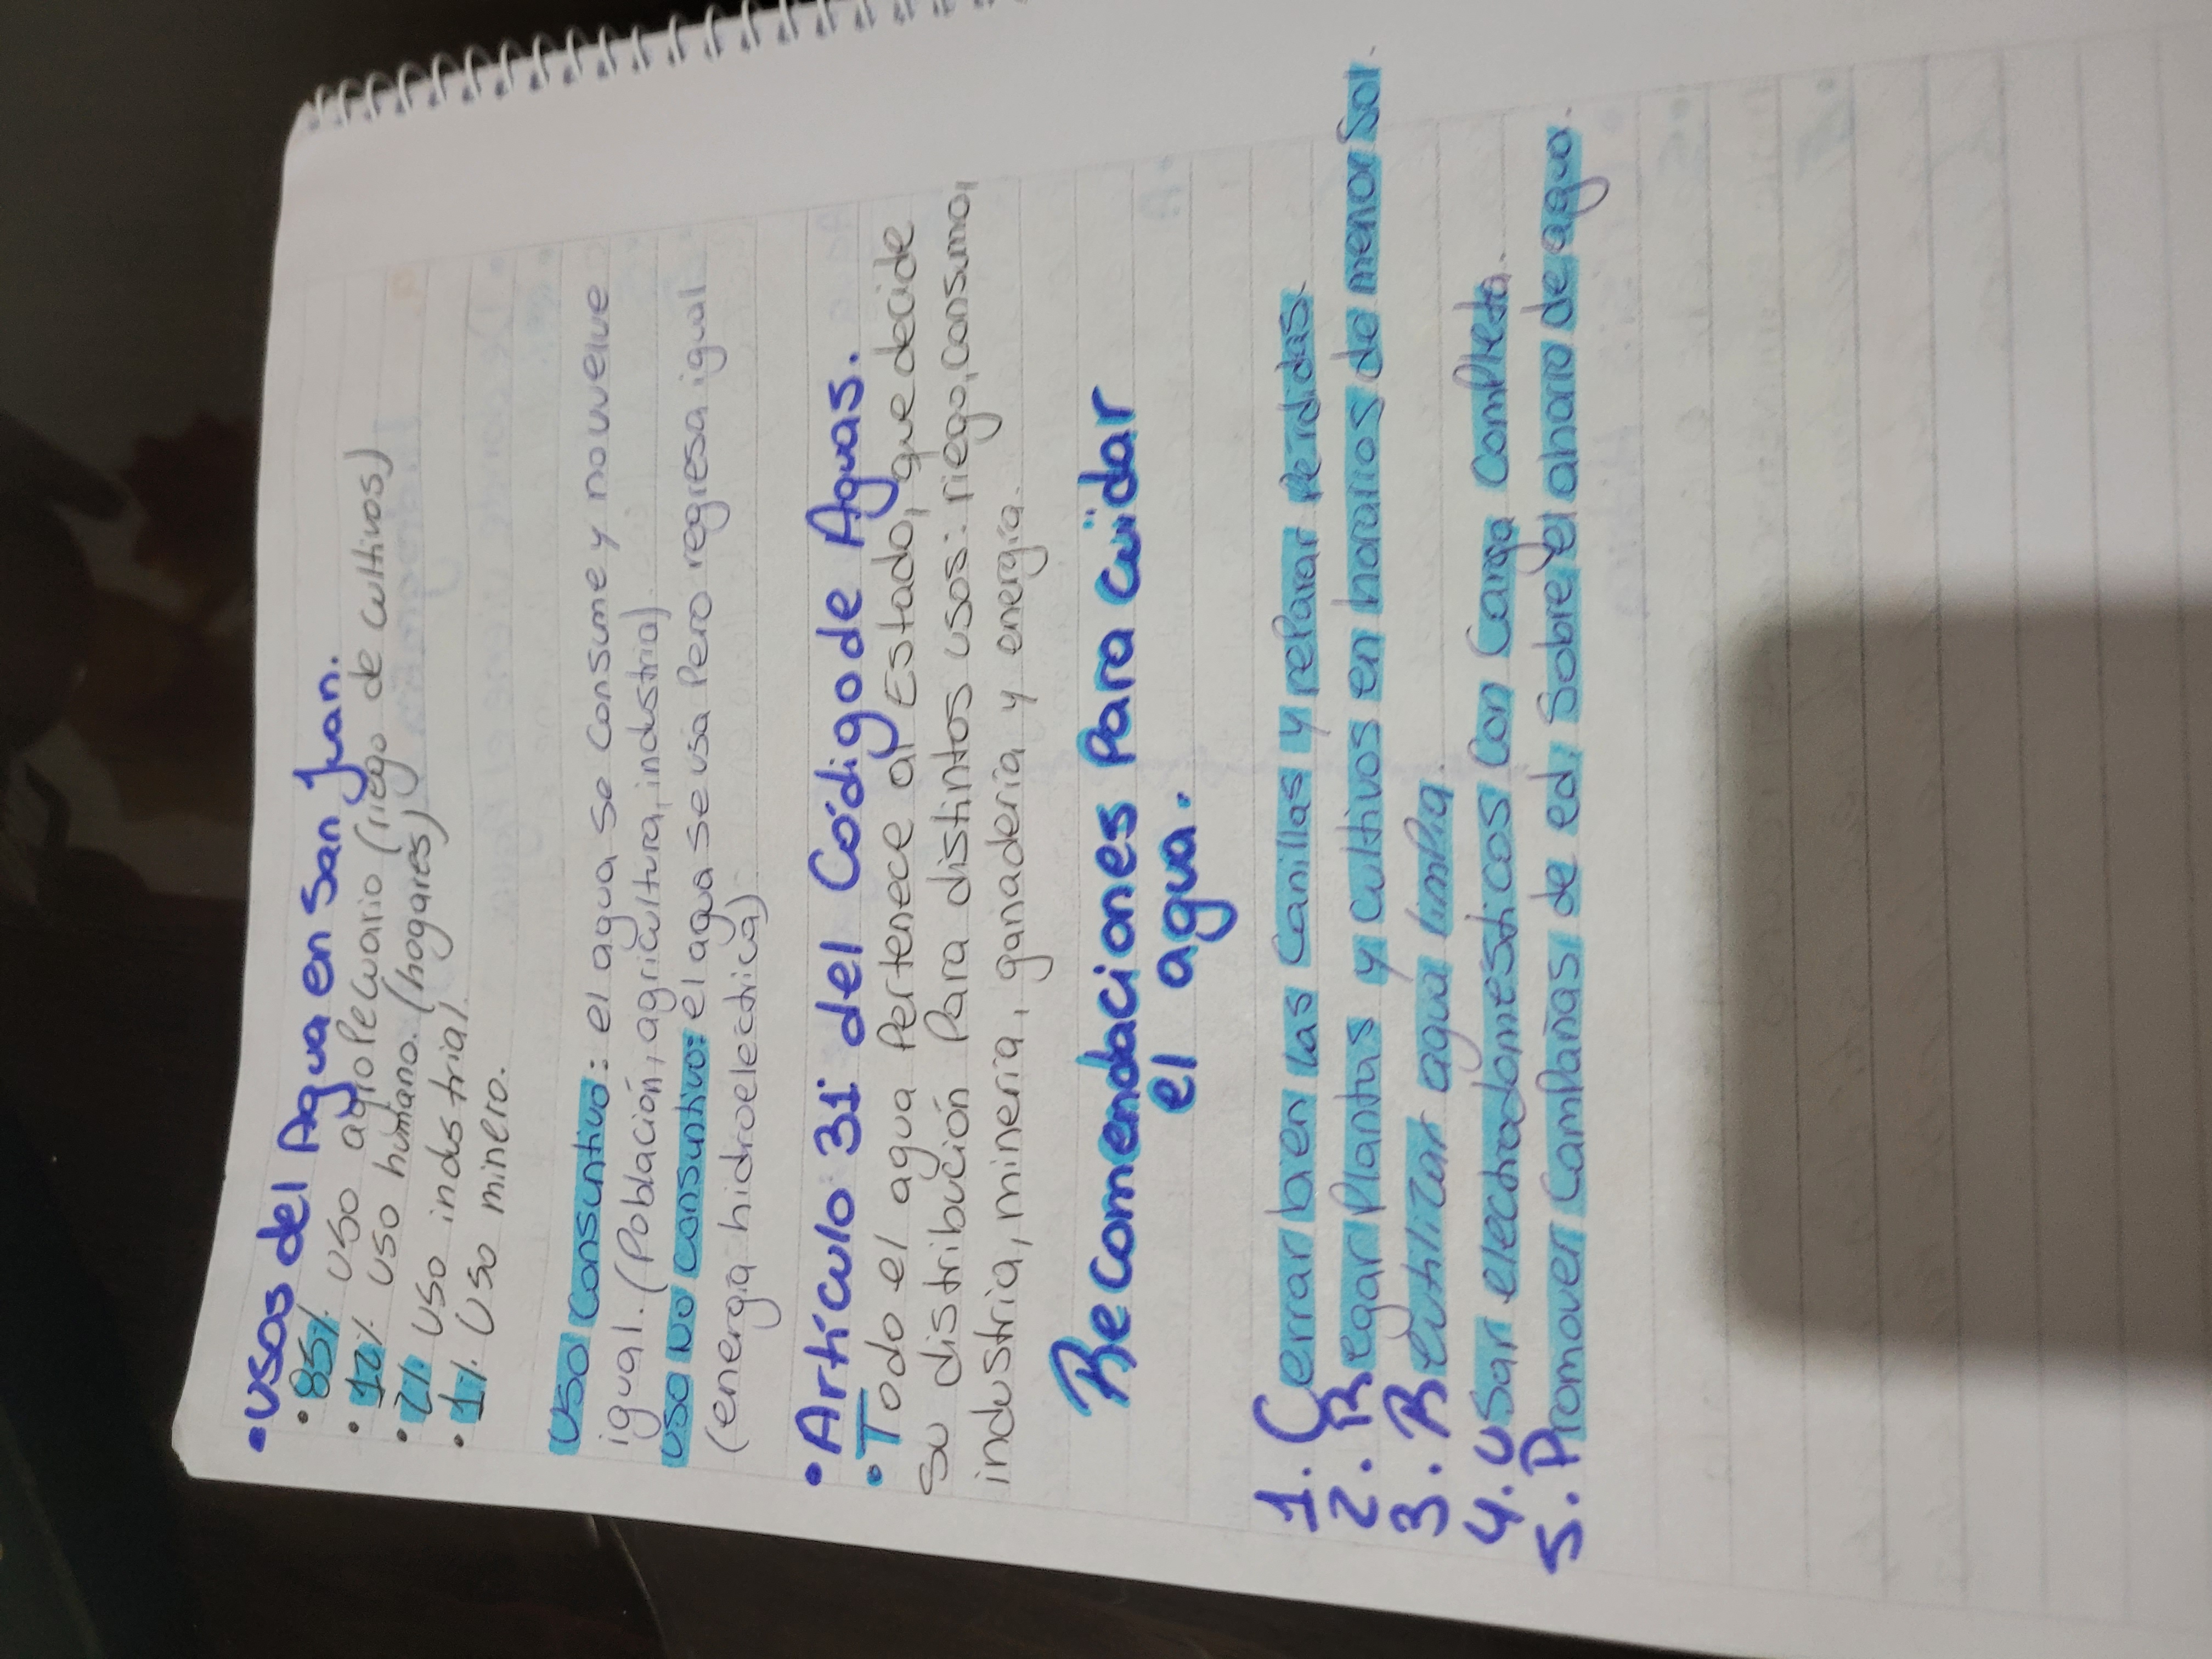 • Usos del Agua en San Juan.
• 85% uso agropecuario (riego de cultivos)
• 12% uso humano. (hogares)
• 2% uso industrial.
• 1% Uso minero.
Uso Consuntivo: el agua se consume y no vuelve
igual. (Población, agricultura, industria).
Uso No consuntivo: el agua se usa Pero regresa igual.
(energía hidroeléctrica).
• Artículo 31 del Código de Aguas.
• Todo el agua Pertenece al Estado, que decide
su distribución Para distintos usos: riego, consumo,
industria, minería, ganadería y energía.
Recomendaciones Para Cuidar
el agua.
1. Cerrar bien las Canillas y reparar Perdidas.
2. Regar Plantas y cultivos en horarios de menor Sol.
3. Reutilizar agua limpia.
4. Usar electrodomesticos Con Carga Completa.
5. Promover Campañas de ed. Sobre el ahorro de agua.